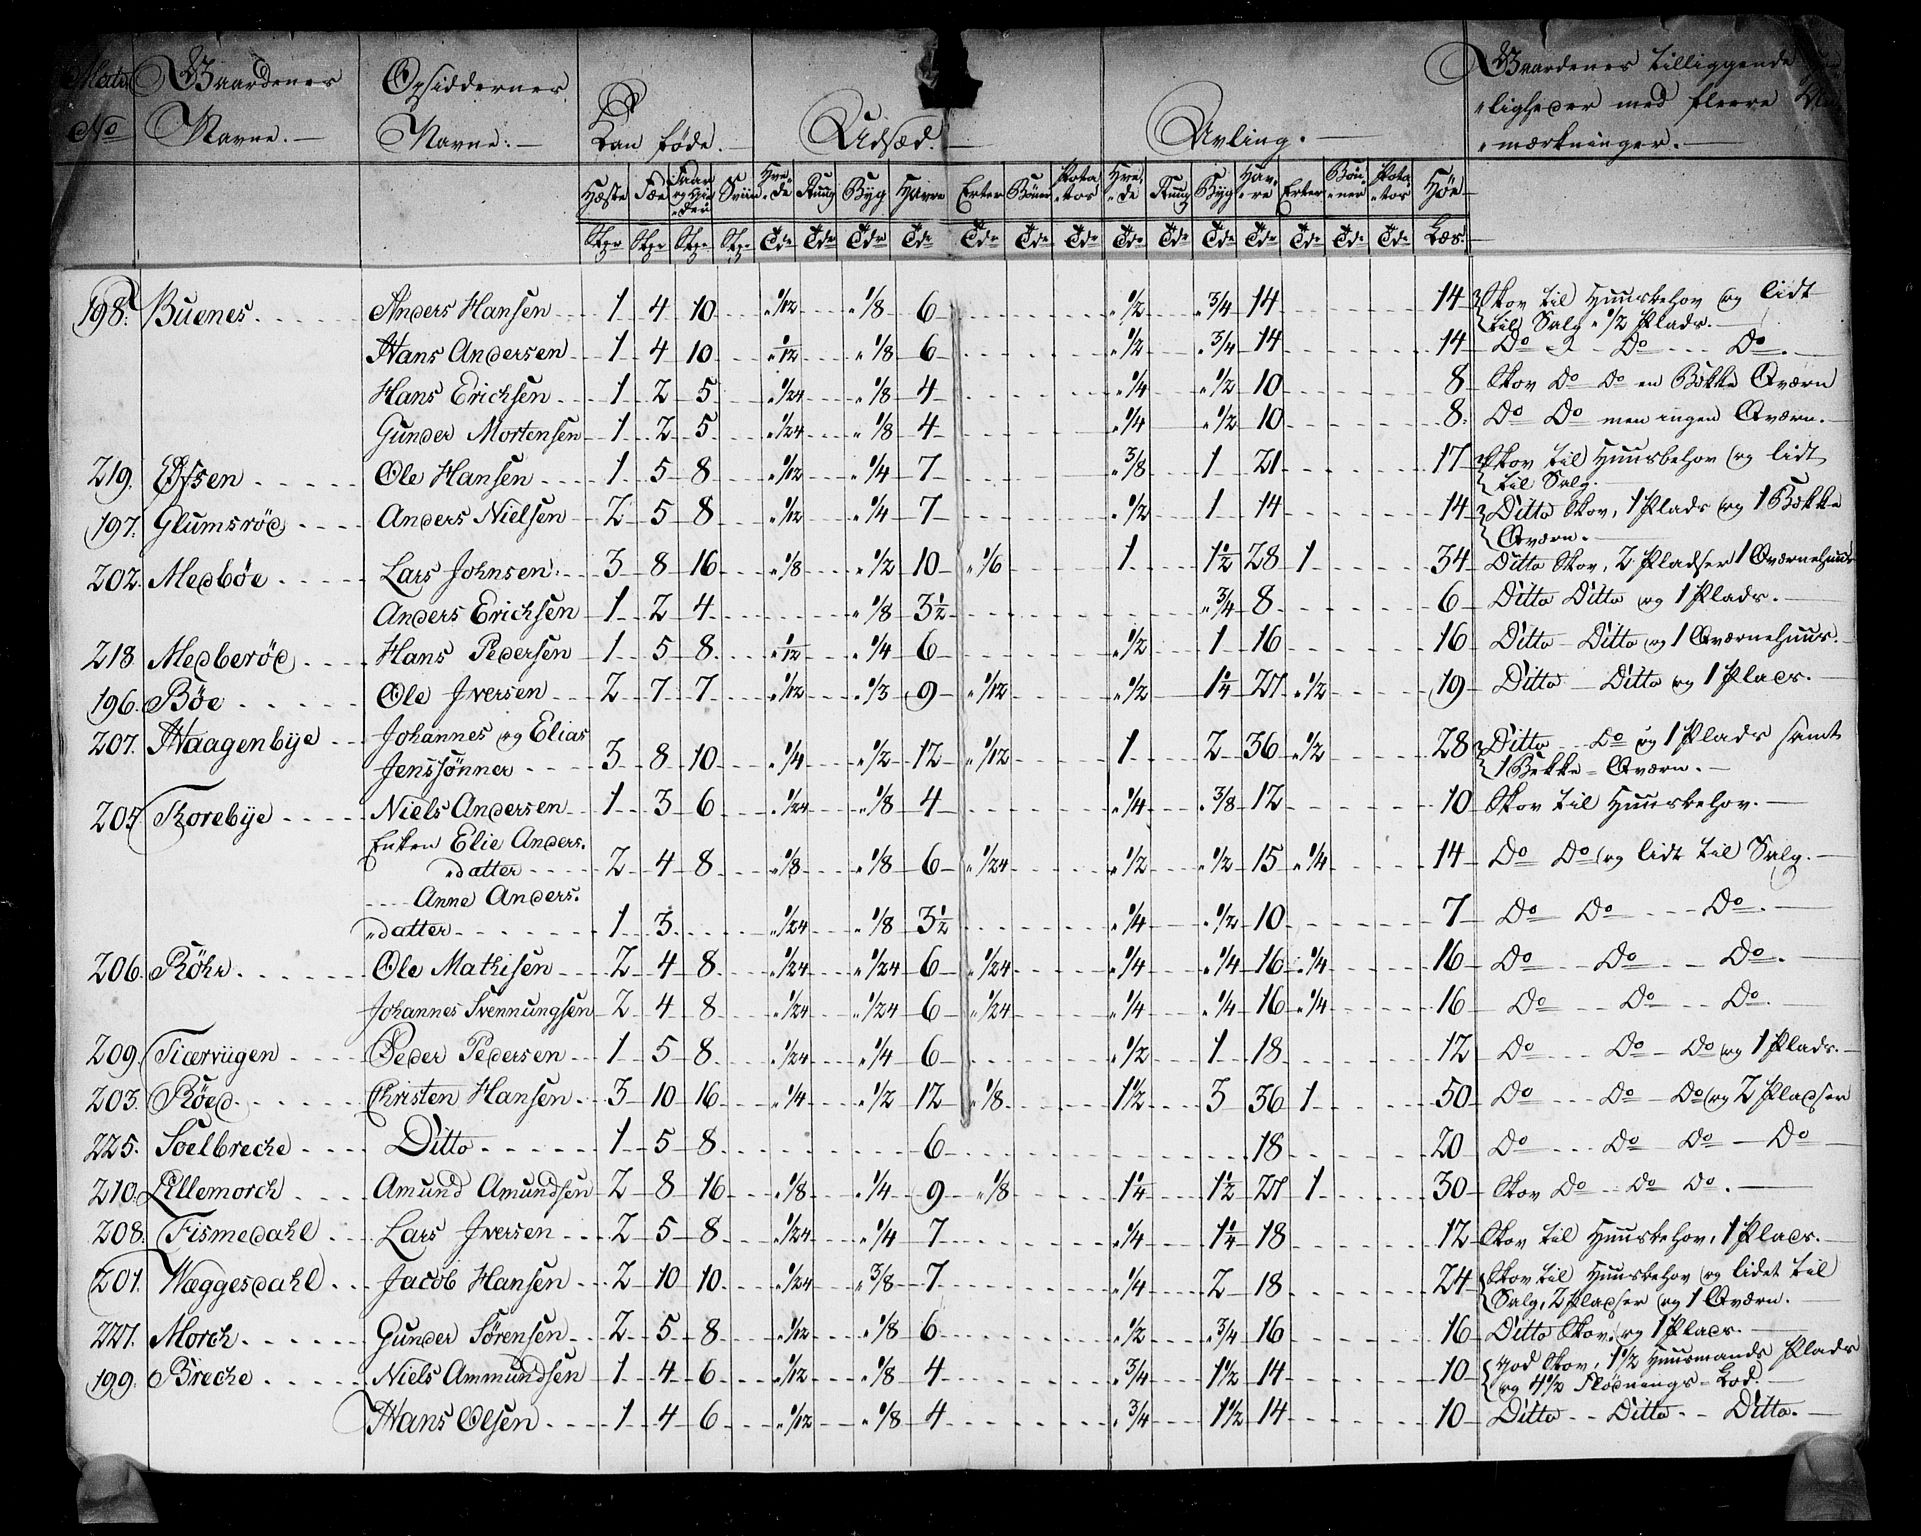 Matr Gaardenes Opsiddernes Gaardenes tilliggende
No Navne. Navne. Kan føde. Udsæd. Avling. ligheder med fleere
mærkninger.
Hæste Fæe Faar og Gieder Sviin Hvede Ruug Byg Havre Erter Bönner Potatos Hvede Ruug Byg Havre Erter Bönner Potatos Höe
Stkr Stkr Stkr Stkr Tdr Tdr Tdr Tdr Tdr Tdr Tdr Tdr Tdr Tdr Tdr Tdr Tdr Tdr Læs
198. Buenes Anders Hansen 1 4 10 1/12 1/8 6 1/2 3/4 14 14 Skov til Huusbehov og lidt
til Salg 1/2 Plads.
Hans Andersen 1 4 10 1/12 1/8 6 1/2 3/4 14 14 Do Do Do.
Hans Erichsen 1 2 5 1/24 1/8 4 1/4 1/2 10 8 Skov Do Do en Bekke Qværn
Gunder Mortensen 1 2 5 1/24 1/8 4 1/4 1/2 10 8 Do Do men ingen Qværn.
219. Ølsen Ole Hansen 1 5 8 1/12 1/4 7 3/8 1 21 17 Skov til Huusbehov og lidt
til Salg.
197. Glumsröd Anders Nielsen 2 5 8 1/12 1/4 7 1/2 1 14 14 Ditto Skov, 1 Plads og 1 Bekke
Qværn.
202. Medböe Lars Johnsen 3 8 16 1/8 1/2 10 1/6 1 1 1/2 28 1 34 Ditto Skov, 2 Pladser 1 Qværnehuus
Anders Erichsen 1 2 4 1/8 3 1/2 3/4 8 6 Ditto Ditto og 1 Plads.
218 Medberöd Hans Pedersen 1 5 8 1/12 1/4 6 1/2 1 16 16 Ditto Ditto og 1 Qværnehuus.
196. Böe Ole Iversen 2 7 7 1/12 1/3 9 1/12 1/2 1 1/4 27 1/2 19 Ditto Ditto og 1 Plads.
207. Haagenbye Johannes og Elias
Jenssönner 3 8 10 1/4 1/2 12 1/12 1 2 36 1/2 28 Ditto Do og 1 Plads samt
1 Bekke-Qværn.
205 Torebye Niels Andersen 1 3 6 1/24 1/8 4 1/4 3/8 12 10 Skov til Huusbehov.
Enken Elie Anders.
datter 2 4 8 1/8 1/8 6 1/24 1/2 1/2 15 1/4 14 Do Do og lidt til Salg.
Anne Anders.
datter 1 3 1/24 1/8 3 1/2 1/4 1/2 10 7 Do Do Do.
206. Röhr Ole Mathisen 2 4 8 1/24 1/24 6 1/24 1/4 1/4 16 1/4 16 Do Do Do.
Johannes Svennungsen 2 4 8 1/24 1/24 6 1/24 1/4 1/4 16 1/4 16 Do Do Do.
209. Ticervügen Peder Pedersen 1 5 8 1/24 1/4 6 1/2 1 18 12 Do Do Do og 1 Plads.
203. Röed Christen Hansen 3 10 16 1/4 1/2 12 1/8 1 1/2 3 36 1 50 Do Do Do og 2 Pladser
225. Soelbreche Ditto 1 5 8 6 18 20 Do Do Do Do
210. Lillemorch Amund Amundsen 2 8 16 1/8 1/4 9 1/8 1 1/4 1 1/2 27 1 30 Skov Do Do Do.
208. Fismedahl Lars Iversen 2 5 8 1/24 1/4 7 1/4 1 1/4 18 12 Skov til Huusbehov, 1 Plads.
201. Wæggesdahl Jacob Hansen 2 10 10 1/24 3/8 7 1/4 2 18 24 Skov til Huusbehov og lidet til
Salg, 2 Pladser og 1 Qværn.
227. Morch Gunder Sörensen 2 5 8 1/12 1/8 6 1/2 3/4 16 16 Ditto Skov, og 1 Plads.
199. Breche Niels Ammundsen 1 4 6 1/12 1/8 4 3/4 1 1/2 14 10 god Skov, 1 1/2 Huusmands Plads
og 4 1/2 Flödnings-Lod.
Hans Olsen 1 4 6 1/12 1/8 4 3/4 1 1/2 14 10 Ditto Ditto Ditto.